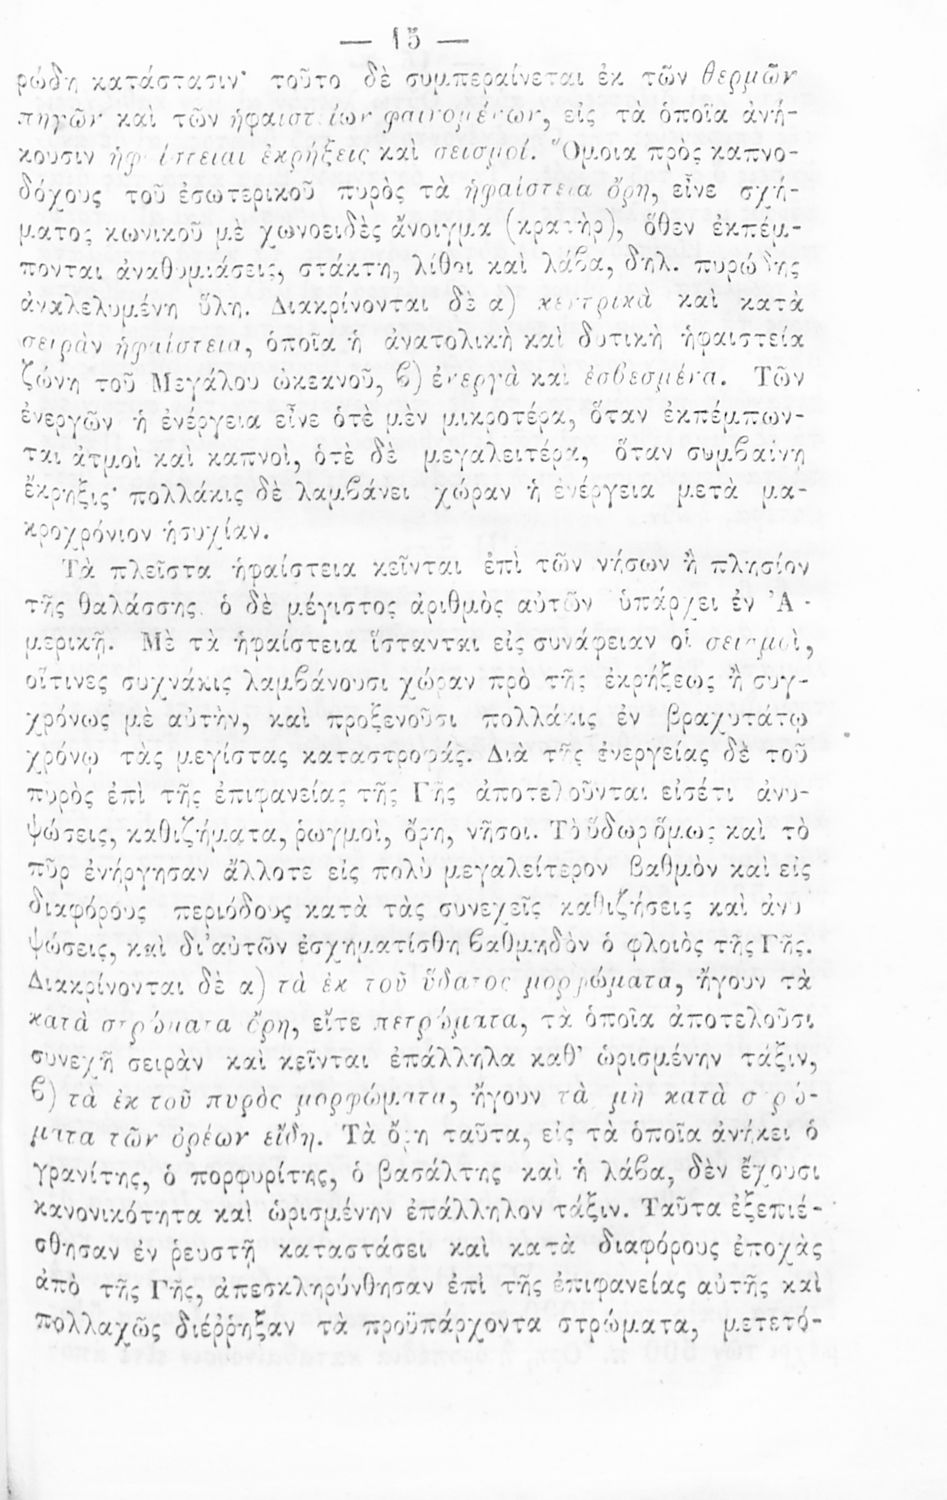 — 15 —
ρώδη κατάστασιν· τοῦτο δὲ συμπεραίνεται ἐκ τῶν θερμῶν
πηγῶν καὶ τῶν ἡφαιστείων φαινομένων, εἰς τὰ ὁποῖα ἀνή-
κουσιν ἡφαίστειαι ἐκρήξεις καὶ σεισμοί. Ὅμοια πρὸς καπνο-
δόχους τοῦ ἐσωτερικοῦ πυρὸς τὰ ἡφαίστεια ὄρη, εἶνε σχή-
ματος κωνικοῦ μὲ χωνοειδὲς ἄνοιγμα (κρατὴρ), ὅθεν ἐκπέμ-
πονται ἀναθυμιάσεις, στάκτη, λίθοι καὶ λάβα, δηλ. πυρώδης
ἀναλελυμένη ὕλη. Διακρίνονται δὲ α) κεντρικὰ καὶ κατὰ
σειρὰν ἡφαίστεια, ὁποῖα ἡ ἀνατολικὴ καὶ δυτικὴ ἡφαιστεία
ζώνη τοῦ Μεγάλου ὠκεανοῦ, β) ἐνεργὰ καὶ ἐσβεσμένα. Τῶν
ἐνεργῶν ἡ ἐνέργεια εἶνε ὁτὲ μὲν μικροτέρα, ὅταν ἐκπέμπων-
ται ἀτμοὶ καὶ καπνοὶ, ὁτὲ δὲ μεγαλειτέρα, ὅταν συμβαίνη
ἔκρηξις· πολλάκις δὲ λαμβάνει χώραν ἡ ἐνέργεια μετὰ μα-
κροχρόνιον ἡσυχίαν.
Τὰ πλεῖστα ἡφαίστεια κεῖνται ἐπὶ τῶν νήσων ἢ πλησίον
τῆς θαλάσσης. ὁ δὲ μέγιστος ἀριθμὸς αὐτῶν ὑπάρχει ἐν Ἀ-
μερικῇ. Μὲ τὰ ἡφαίστεια ἵστανται εἰς συνάφειαν οἱ σεισμοὶ,
οἵτινες συχνάκις λαμβάνουσι χώραν πρὸ τῆς ἐκρήξεως ἢ συγ-
χρόνως μὲ αὐτὴν, καὶ προξενοῦσι πολλάκις ἐν βραχυτάτω
χρόνῳ τὰς μεγίστας καταστροφάς. Διὰ τῆς ἐνεργείας δὲ τοῦ
πυρὸς ἐπὶ τῆς ἐπιφανείας τῆς Γῆς ἀποτελοῦνται εἰσέτι ἀνυ-
ψώσεις, καθιζήματα, ῥωγμοὶ, ὄρη, νῆσοι. Τὸ ὕδωρ ὅμως καὶ τὸ
πῦρ ἐνήργησαν ἄλλοτε εἰς πολὺ μεγαλείτερον βαθμὸν καὶ εἰς
διαφόρους περιόδους κατὰ τὰς συνεχεῖς καθιζήσεις καὶ ἀνυ
ψώσεις, καὶ δι' αὐτῶν ἐσχηματίσθη βαθμηδὸν ὁ φλοιὸς τῆς Γῆς.
Διακρίνονται δὲ α) τὰ ἐκ τοῦ ὕδατος μορφώματα, ἤγουν τὰ
κατὰ στρώματα ὄρη, εἴτε πετρώματα, τὰ ὁποῖα ἀποτελοῦσι
συνεχῆ σειρὰν καὶ κεῖνται ἐπάλληλα καθ' ὡρισμένην τάξιν,
β) τὰ ἐκ τοῦ πυρὸς μορφώματα, ἤγουν τὰ μὴ κατὰ στρώ-
ματα τῶν ὀρέων εἴδη. Τὰ ὄρη ταῦτα, εἰς τὰ ὁποῖα ἀνήκει ὁ
γρανίτης, ὁ πορφυρίτης, ὁ βασάλτης καὶ ἡ λάβα, δὲν ἔχουσι
κανονικότητα καὶ ὡρισμένην ἐπάλληλον τάξιν. Ταῦτα ἐξεπιέ-
σθησαν ἐν ῥευστῇ καταστάσει καὶ κατὰ διαφόρους ἐποχὰς
ἀπὸ τῆς Γῆς, ἀπεσκληρύνθησαν ἐπὶ τῆς ἐπιφανείας αὐτῆς καὶ
πολλαχῶς διέῤῥηξαν τὰ προϋπάρχοντα στρώματα, μετετό-